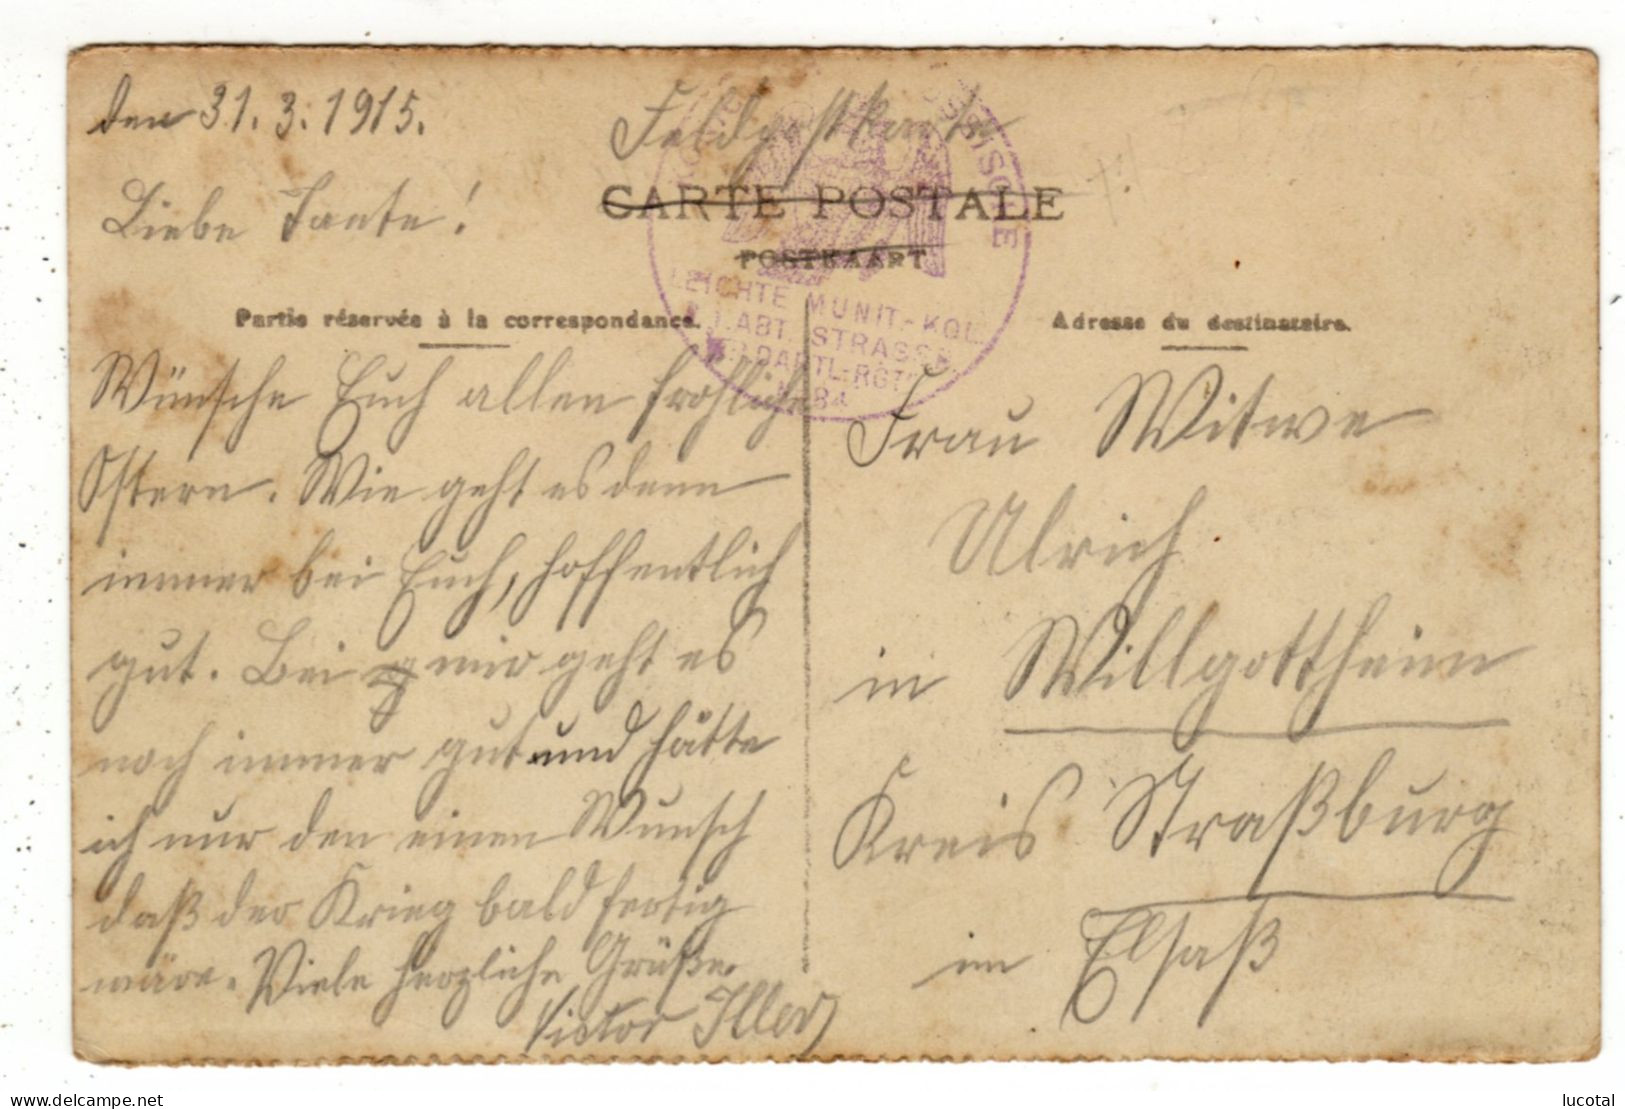 den 31.3.1915.
Feldpostkarte
Liebe Tante!
CARTE POSTALE
POSTKAART
LEICHTE MUNIT.-KOL.
ABT. STRASSB.
84
Partie réservée à la correspondance.
Adresse du destinataire.
Wünsche Euch allen fröhliche
Ostern. Wie geht es denn
immer bei Euch, hoffentlich
gut. Bei mir geht es
noch immer gut und hätte
ich nur den einen Wunsch
daß der Krieg bald fertig
wäre. Viele herzliche Grüße.
Victor
Frau Witwe
Ulrich
in Willgottheim
Kreis Straßburg
im Elsaß
lucotal